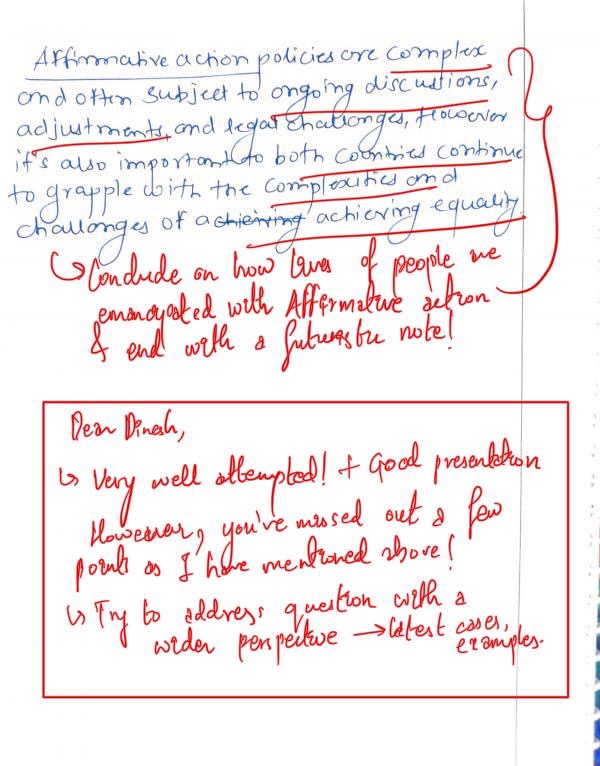 Affirmative action policies are complex
and often subject to ongoing discussions,
adjustments, and legal challenges, However
it's also important to both countries continue
to grapple with the complexities and
challenges of achieving achieving equality.
↳ Conclude on how lives of people are
emancipated with Affirmative action
& end with a futuristic note!
Dear Dinesh,
↳ Very well attempted! + Good presentation
However, you've missed out a few
points as I have mentioned above!
↳ Try to address question with a
wider perspective → latest cases,
examples.